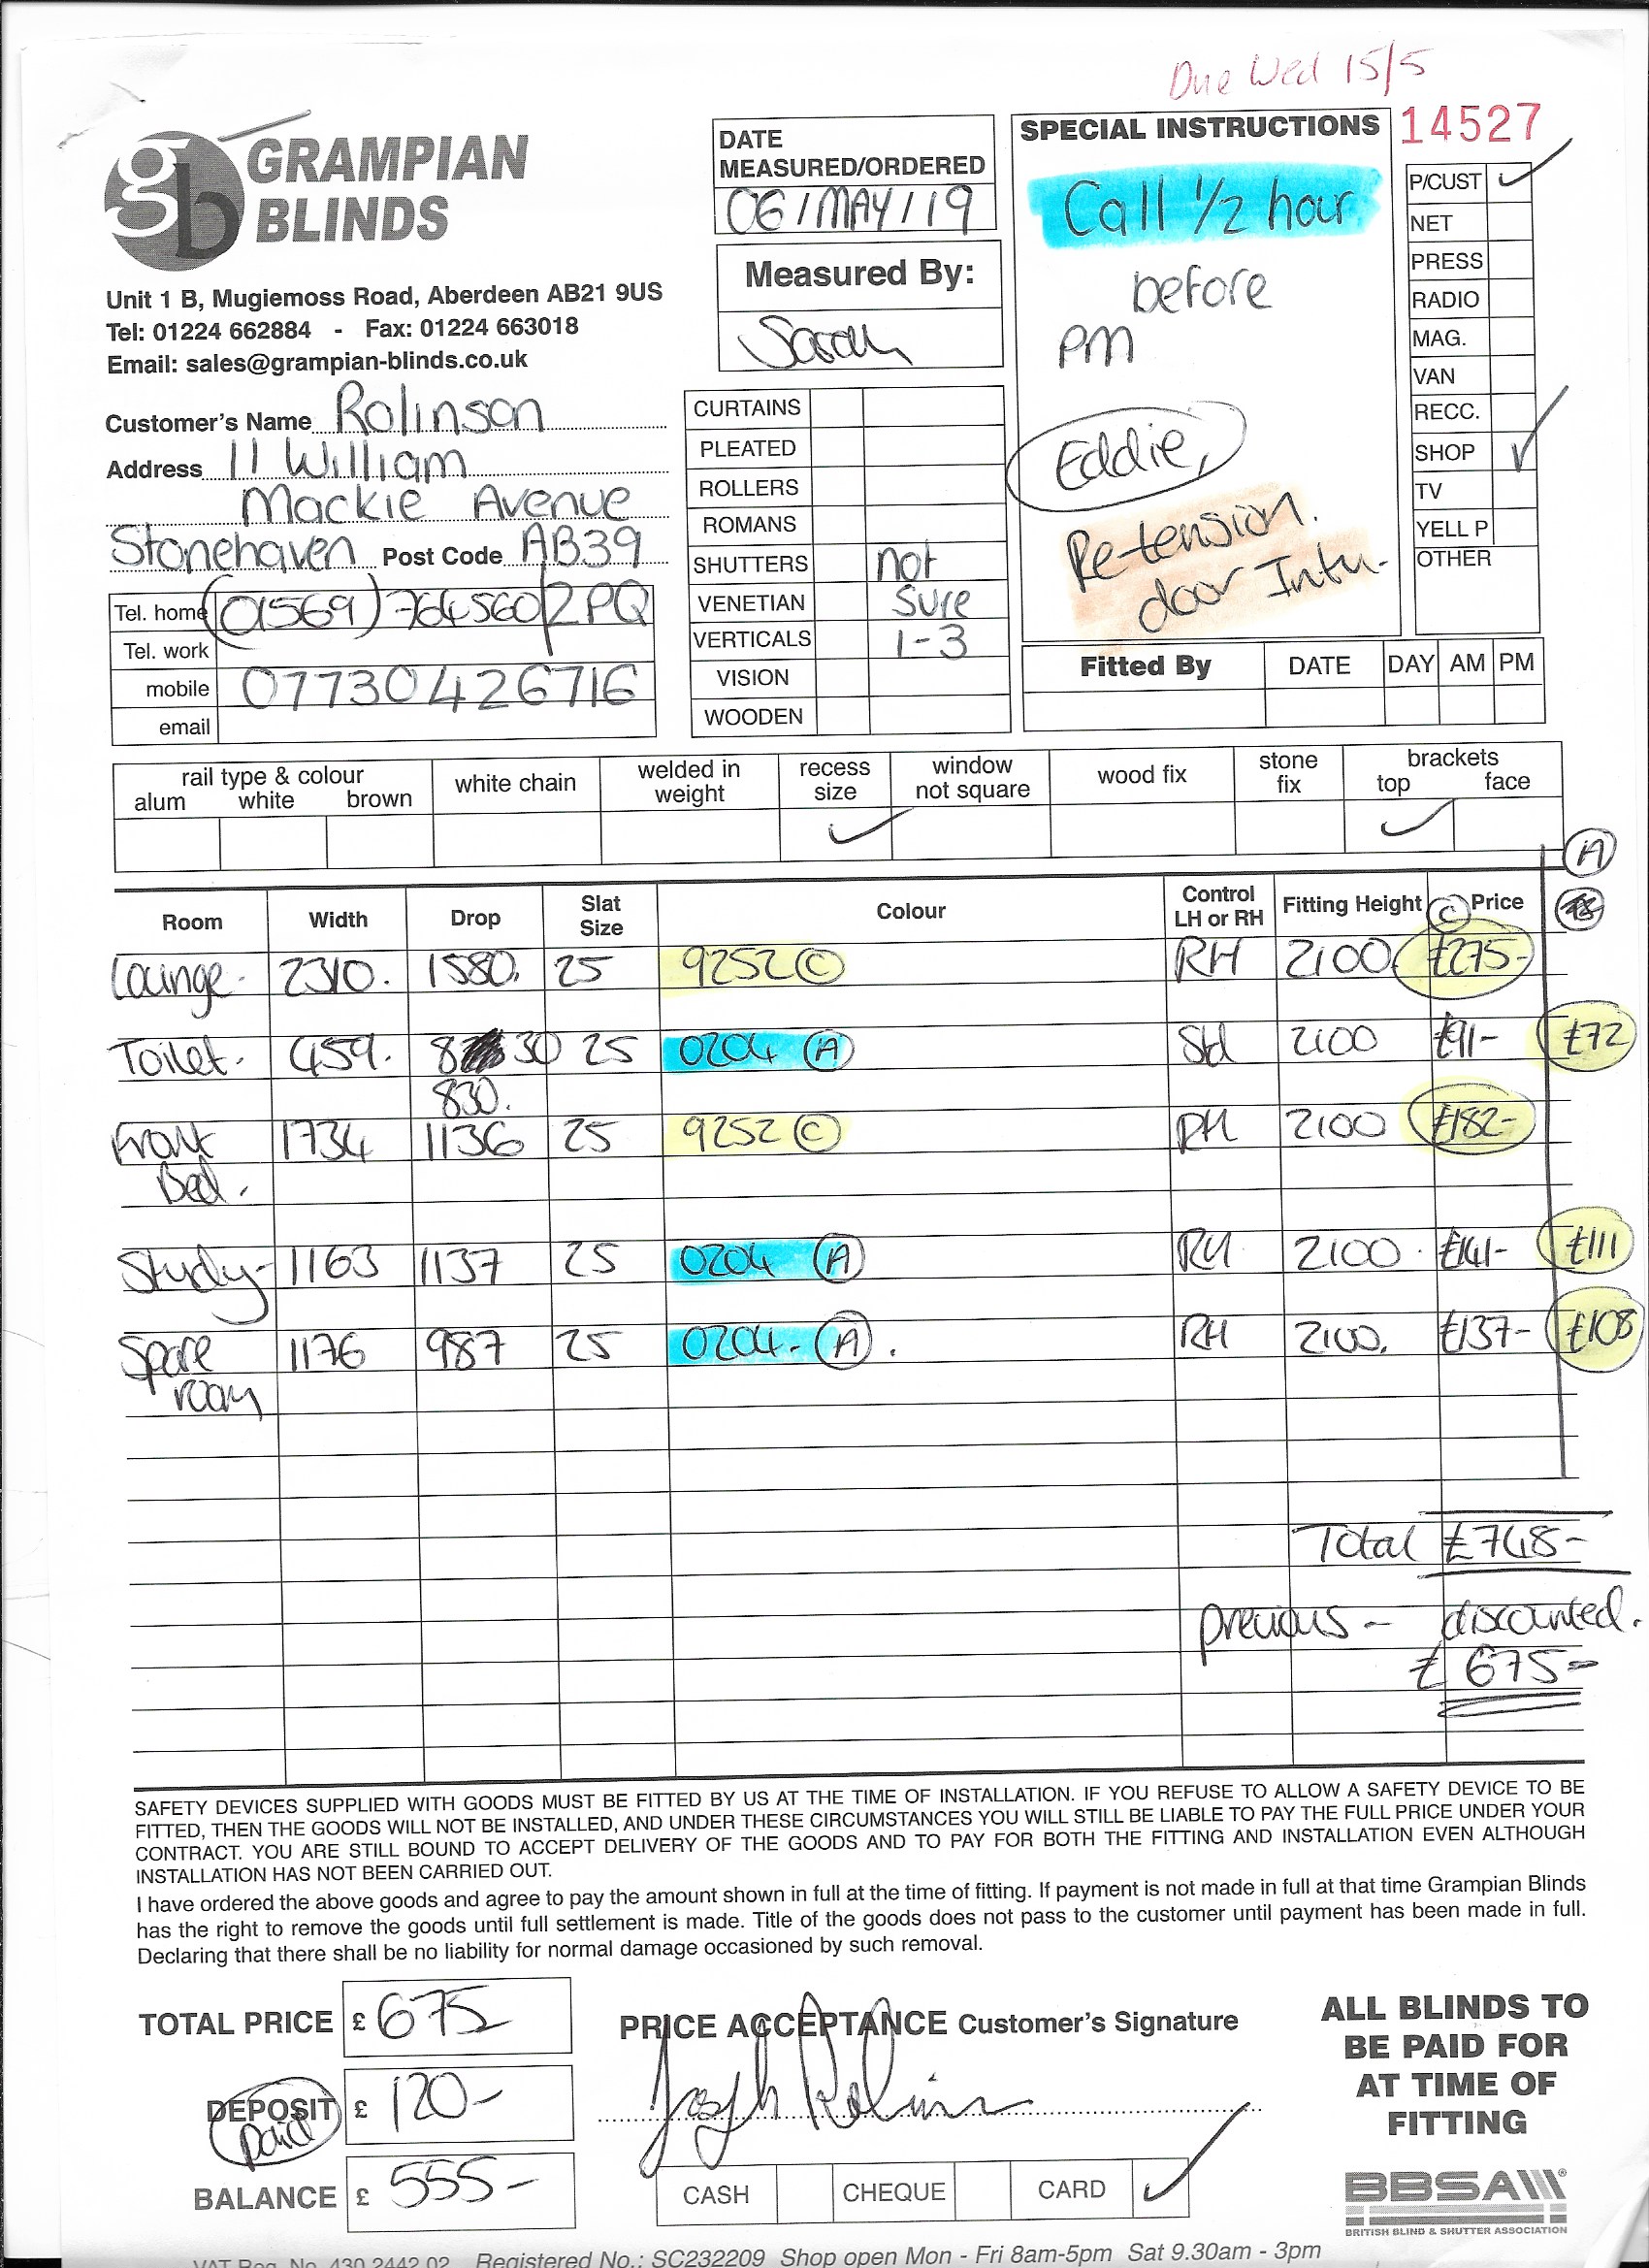 Due Wed 15/5
14527
GRAMPIAN
BLINDS
Unit 1 B, Mugiemoss Road, Aberdeen AB21 9US
Tel: 01224 662884 - Fax: 01224 663018
Email: sales@grampian-blinds.co.uk
Customer's Name Rolinson
Address 11 William
Mackie Avenue
Stonehaven Post Code AB39
Tel. home (01569) 764560 2PQ
Tel. work
mobile 07730426716
email
DATE
MEASURED/ORDERED
06/MAY/19
Measured By:
Sarah
CURTAINS
PLEATED
ROLLERS
ROMANS
SHUTTERS not
VENETIAN sure
VERTICALS 1-3
VISION
WOODEN
SPECIAL INSTRUCTIONS
Call 1/2 hour
before
pm
Eddie,
Re-tension.
door Intu.
P/CUST
NET
PRESS
RADIO
MAG.
VAN
RECC.
SHOP
TV
YELL P
OTHER
Fitted By DATE DAY AM PM
rail type & colour white chain welded in weight recess size window not square wood fix stone fix brackets
alum white brown top face
A
Room Width Drop Slat Size Colour Control LH or RH Fitting Height C Price
Lounge. 2310. 1580. 25 9252 C RH 2100 £275-
Toilet. 459. 8 30 25 0204 A Std 2100 £91- £72
830.
Front 1734 1136 25 9252 C RH 2100 £182-
Bed.
Study- 1163 1137 25 0204 A RH 2100 £141- £111
Spare 1176 987 25 0204- A. RH 2100. £137- £108
room
Total £748-
previous - discounted.
£675=
SAFETY DEVICES SUPPLIED WITH GOODS MUST BE FITTED BY US AT THE TIME OF INSTALLATION. IF YOU REFUSE TO ALLOW A SAFETY DEVICE TO BE
FITTED, THEN THE GOODS WILL NOT BE INSTALLED, AND UNDER THESE CIRCUMSTANCES YOU WILL STILL BE LIABLE TO PAY THE FULL PRICE UNDER YOUR
CONTRACT. YOU ARE STILL BOUND TO ACCEPT DELIVERY OF THE GOODS AND TO PAY FOR BOTH THE FITTING AND INSTALLATION EVEN ALTHOUGH
INSTALLATION HAS NOT BEEN CARRIED OUT.
I have ordered the above goods and agree to pay the amount shown in full at the time of fitting. If payment is not made in full at that time Grampian Blinds
has the right to remove the goods until full settlement is made. Title of the goods does not pass to the customer until payment has been made in full.
Declaring that there shall be no liability for normal damage occasioned by such removal.
TOTAL PRICE £ 675
DEPOSIT £ 120-
paid
BALANCE £ 555-
PRICE ACCEPTANCE Customer's Signature
Joseph Rolinson
CASH CHEQUE CARD
ALL BLINDS TO
BE PAID FOR
AT TIME OF
FITTING
BBSA
BRITISH BLIND & SHUTTER ASSOCIATION
VAT Reg. No. 430 2442 02 Registered No.: SC232209 Shop open Mon - Fri 8am-5pm Sat 9.30am - 3pm